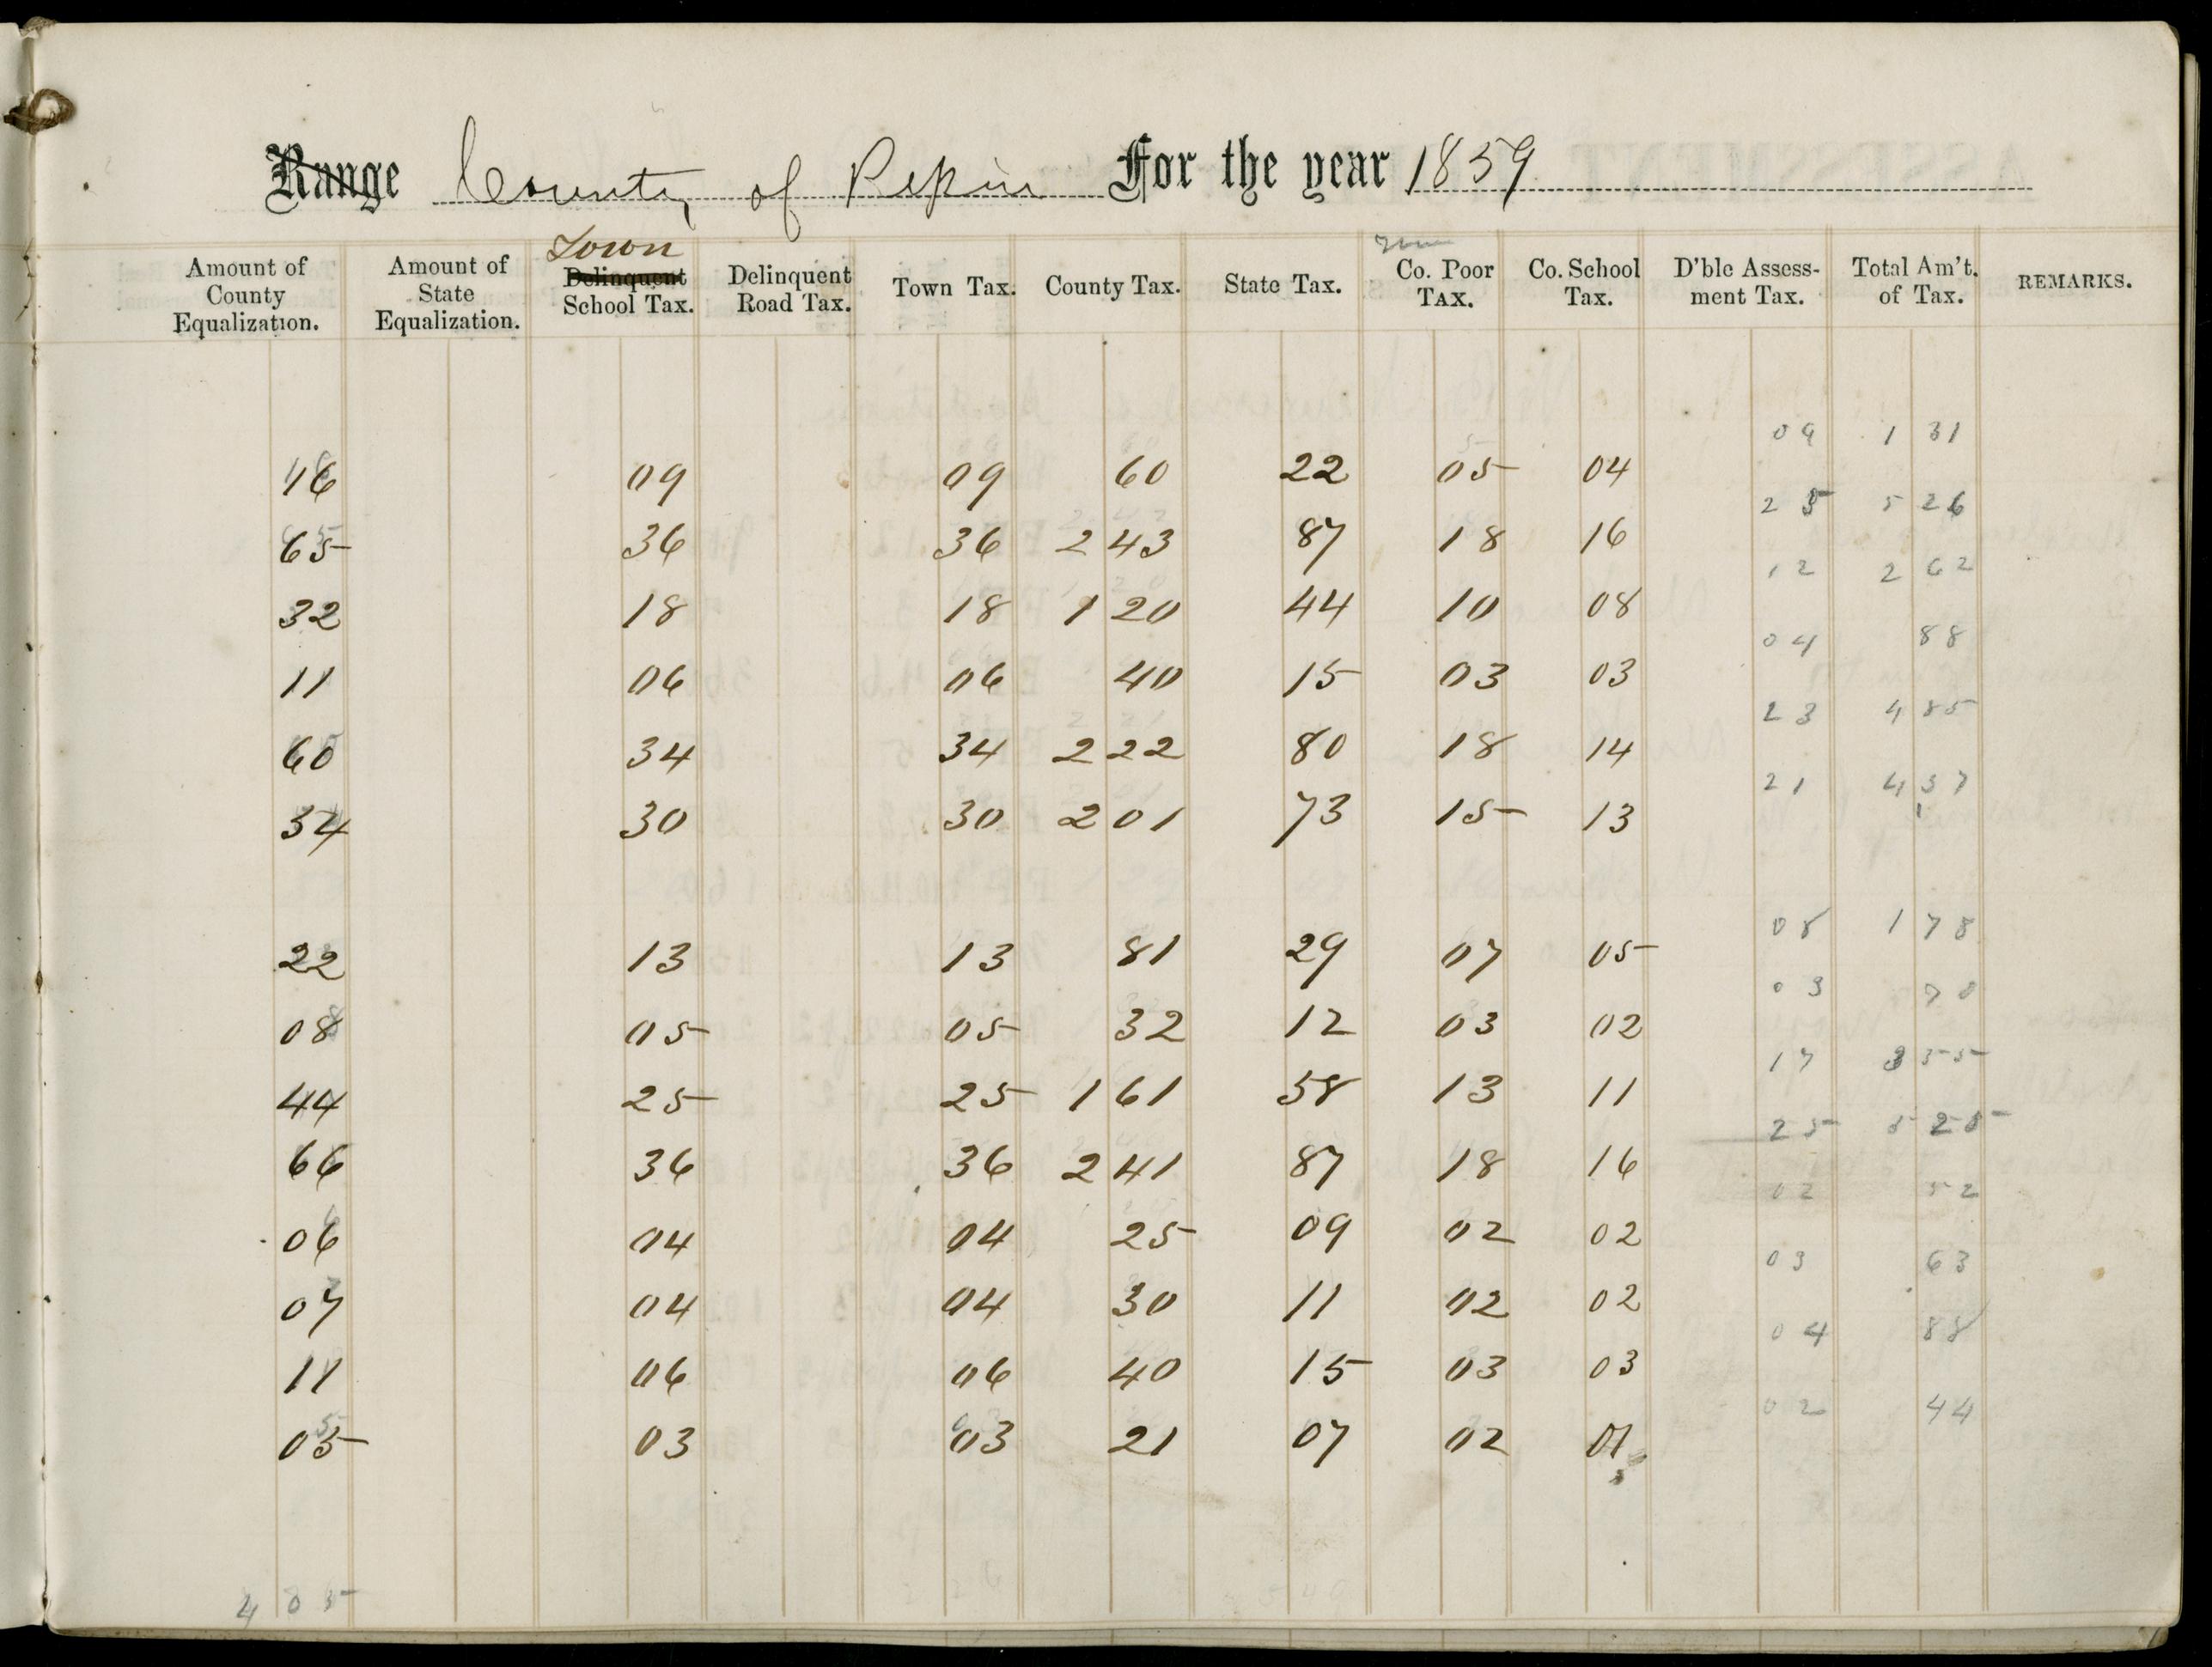 Range County of Pepin For the year 1859
Town Town
Amount of County Equalization. Amount of State Equalization. Delinquent School Tax. Delinquent Road Tax. Town Tax. County Tax. State Tax. Co. Poor Tax. Co. School Tax. D'ble Assessment Tax. Total Am't. of Tax. REMARKS.
09 1 31
16 09 09 60 22 05 04
25 5 26
65 36 36 2 43 87 18 16
12 2 62
32 18 18 1 20 44 10 08
04 88
11 06 06 40 15 03 03
23 4 85
60 34 34 2 22 80 18 14
21 4 37
54 30 30 2 01 73 15 13
08 1 78
22 13 13 81 29 07 05
03 70
08 05 05 32 12 03 02
17 3 55
44 25 25 1 61 58 13 11
25 5 25
66 36 36 2 41 87 18 16
02 52
06 04 04 25 09 02 02
03 63
07 04 04 30 11 02 02
04 88
11 06 06 40 15 03 03
02 44
05 03 03 21 07 02 01
4 85